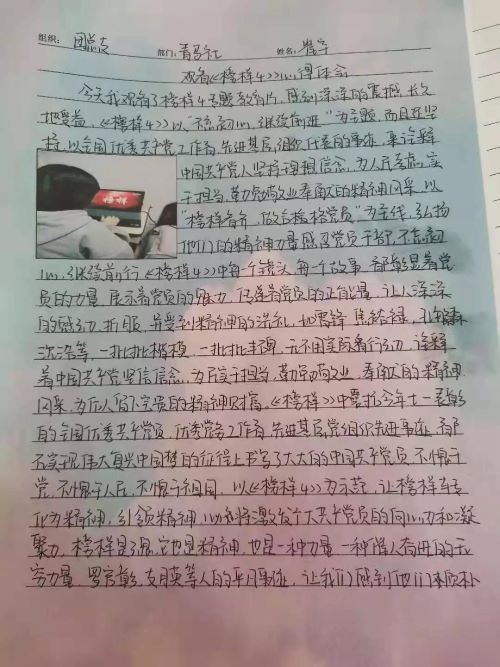 组织： 团总支 部门：青马社 姓名：
观看《榜样4》心得体会
今天我观看了榜样4专题教育片，感到深深的震撼，长久
把受益，《榜样4》以"不忘初心，继续前进"为主题，而且还坚
持，以全国优秀共产党工作者，先进基层组织代表的事迹，来诠释
中国共产党人坚持理想信念，为人民务虑，实
干担当，勤勉尚业奉献的精神风采，以
"榜样看齐，做合格党员"为主线，弘扬
他们的精神力量感召党员干部，不忘初
心，继续前行《榜样4》中每个镜头，每个故事，都彰显着党
员的力量，展示着党员的魅力，传递着党员的正能量，让人深深
的感动，折服，并受到精神的洗礼，如雷锋，焦裕禄，孔繁森
沈浩等，一批批楷模，一批批丰碑，无不用实际行动，诠释
着中国共产党坚信信念，为民实干担当，勤勉尚业，奉献的精神
风采，为后人留下宝贵的精神财富。《榜样》中要扎今年七一表彰
的全国优秀共产党员，优秀党务工作者，先进基层党组织先进事迹，
在实现伟大复兴中国梦的征程上书写了大大的中国共产党员，不愧于
党，不愧于人民，不愧于祖国，以《榜样4》为示范，让榜样
化为精神，引领精神，必将激发广大共产党员的向心力和凝
聚力，榜样是引领，它也是精神，也是一种力量，一种催人奋进的无
穷力量，罗官章，支月英等人的平凡事迹，让我们感到他们本质朴